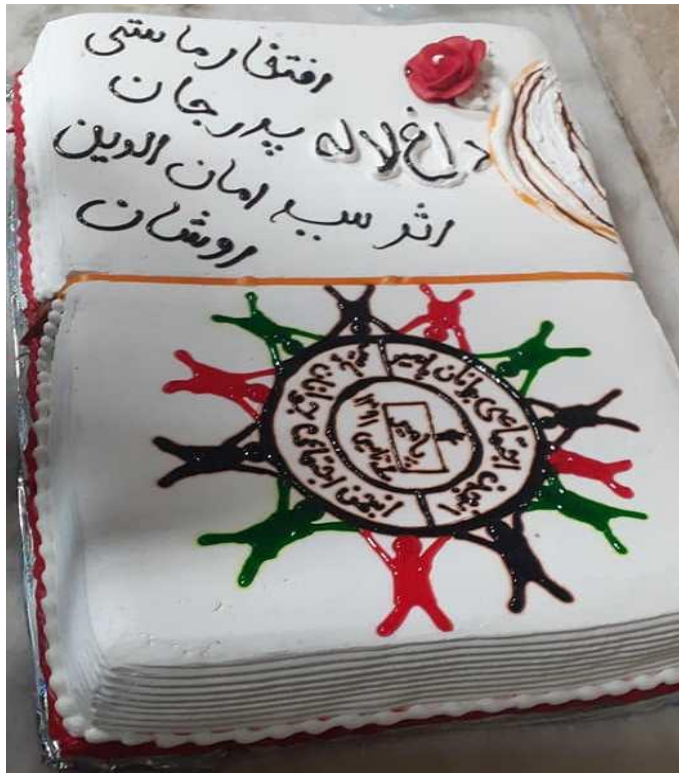 افتخار ماستی
داغ لاله پدر جان
اثر سید امان الدین
روشان
انجمن اجتماعی جوانان پامیر
انجمن اجتماعی جوانان پامیر
پامیر
۱۳۹۱